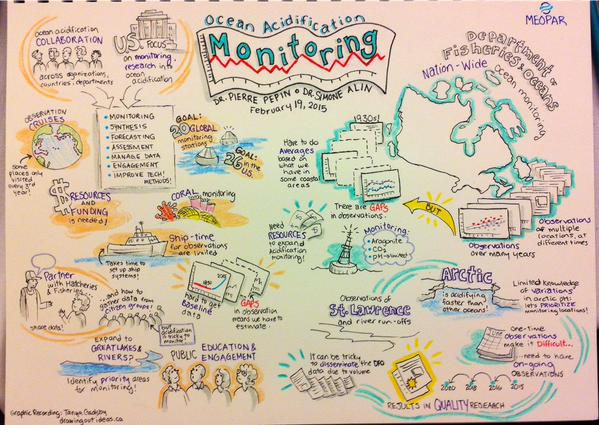 Ocean Acidification
Monitoring
DR. PIERRE PEPIN & DR. SIMONE ALIN
February 19, 2015
MEOPAR
ocean acidification
COLLABORATION
across organizations,
countries, departments
US FOCUS
on monitoring
research in
ocean
acidification
MONITORING
SYNTHESIS
FORECASTING
ASSESSMENT
MANAGE DATA
ENGAGEMENT
IMPROVE TECH!
METHODS!
OBSERVATION
CRUISES
some
places only
visited
every 3rd
year!
GOAL:
20 GLOBAL
monitoring
stations!
GOAL:
26 in the
U.S.
RESOURCES
AND
FUNDING
is needed!
CORAL monitoring
Ship-time
for observations
are limited
Takes time to
set up ship
systems!
Partner
with Hatcheries
& Fisheries
share data!
...and how
to gather
data from
citizen groups?
but
acidification
is tricky to
monitor
1850
2015
hard to get
Baseline
data
GAPS
in observation
means we have to
estimate
EXPAND TO
GREAT LAKES
& RIVERS?
Identify priority areas
for monitoring!
PUBLIC EDUCATION &
ENGAGEMENT
Graphic Recording: Tanya Gadsby
drawingoutideas.ca
Department of
Fisheries & Oceans
ocean monitoring
Nation-Wide
1930s!
Have to do
Averages
based on
what we
have in
some coastal
areas
There are GAPS
in observations
BUT
Observations
over many years
Observations
of multiple
locations, at
different times
Need
RESOURCES
to expand
acidification
monitoring!
Monitoring:
• Aragonite
• CO2
• pH-limited
Observations of
St. Lawrence
and river run-offs
Arctic
is acidifying
faster than
other oceans!
Limited knowledge
of variations
in arctic pH:
let's PRIORITIZE
monitoring locations!
one-time
Observations
make it
Difficult...
...need to have
on-going
OBSERVATIONS
2000 2005 2010 2015
It can be tricky
to disseminate the DFO
data due to volume
RESULTS IN QUALITY RESEARCH